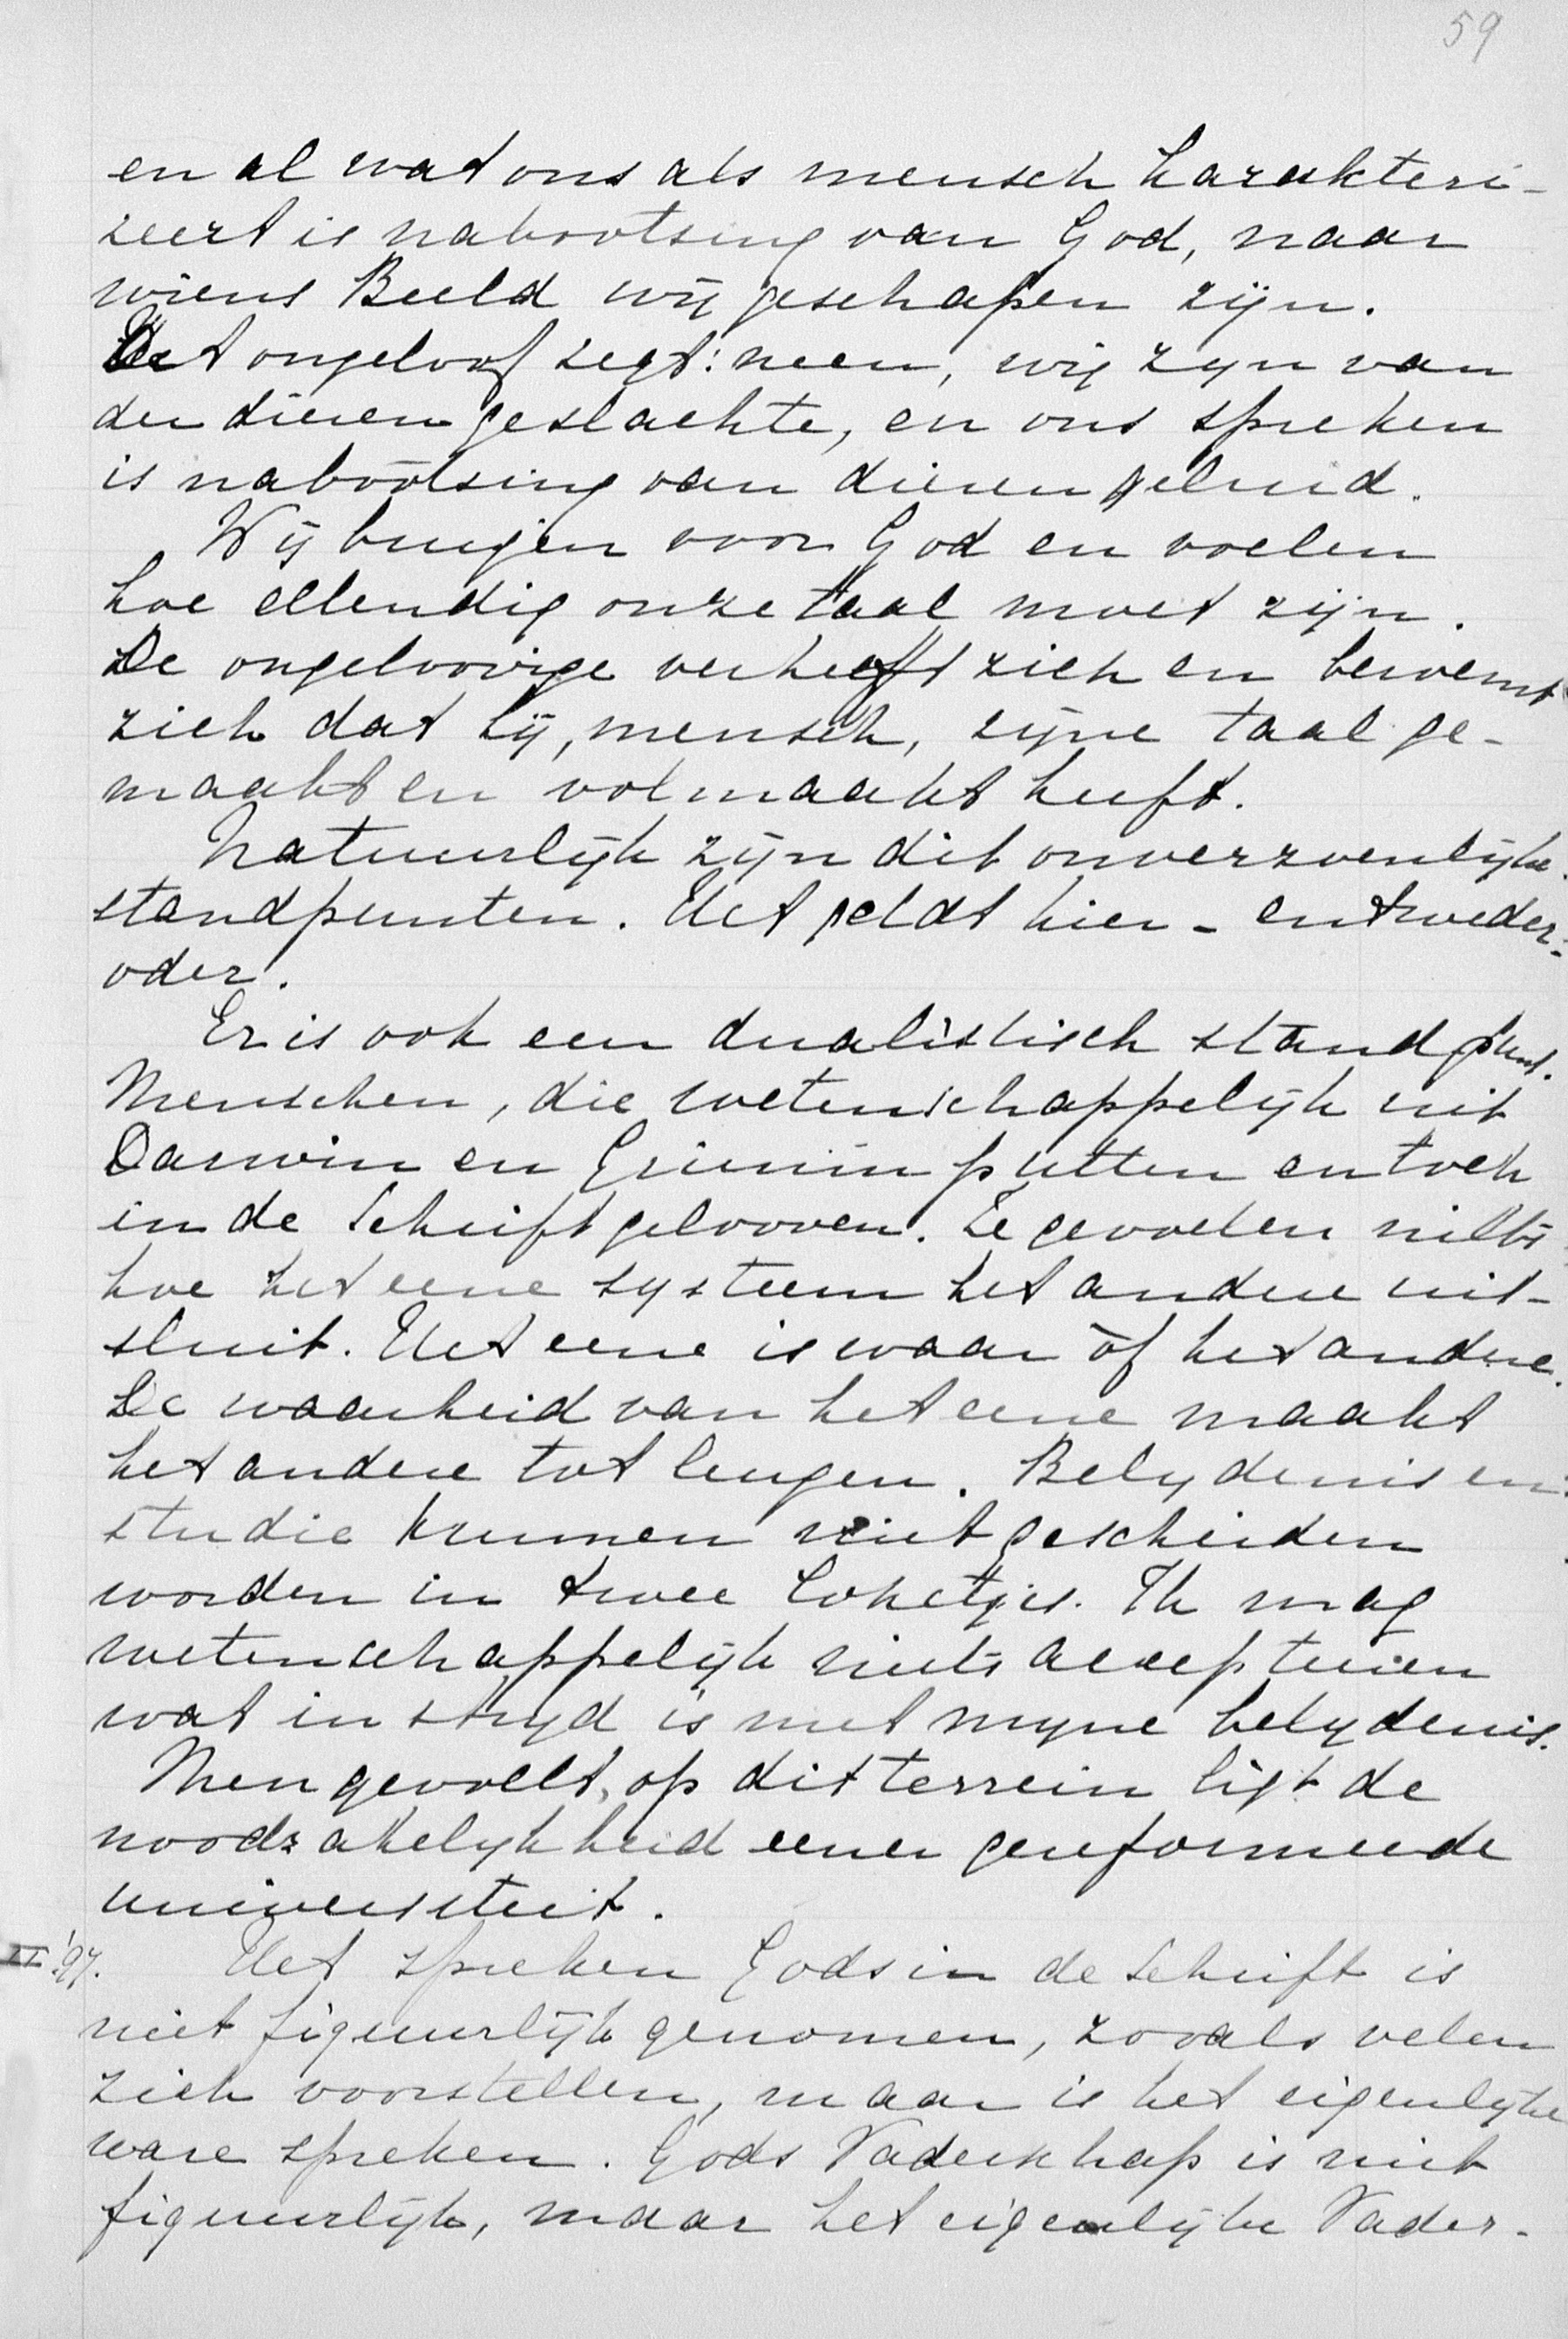 59
en al wat ons als mensch karakteri-
zeert is nabootsing van God, naar
wiens Beeld wij geschapen zijn.
Het ongeloof zegt: neen, wij zijn van
der dieren geslachte, en ons spreken
is nabootsing van dierengeluid.
Wij buigen voor God en voelen
hoe ellendig onze taal moet zijn.
De ongeloovige verheeft zich en beroemt
zich dat hij, mensch, zijne taal ge-
maakt en volmaakt heeft.
Natuurlijk zijn dit onverzoenlijke
standpunten. Het geldt hier - entweder-
oder.
Er is ook een dualistisch standpunt.
Menschen, die wetenschappelijk uit
Darwin en Grimm putten en toch
in de Schrift gelooven. Ze gevoelen niets
hoe het eene systeem het andere uit-
sluit. Het eene is waar òf het andere.
De waarheid van het eene maakt
het andere tot leugen. Belydenis en
studie kunnen niet gescheiden
worden in twee loketjes. Ik mag
wetenschappelijk niets accepteeren
wat in stryd is met myne belydenis.
Men gevoelt, op dit terrein ligt de
noodzakelijkheid eener gereformeerde
universiteit.
II '97. Het spreken Gods in de Schrift is
niet figuurlijk genomen, zooals velen
zich voorstellen, maar is het eigenlijke
ware spreken. Gods Vaderschap is niet
figuurlijk, maar het eigenlijke Vader-